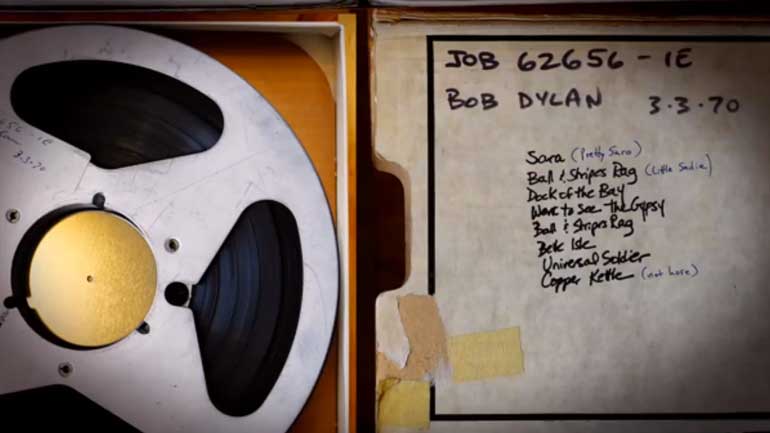 656-1E
3.3.70
JOB 62656-1E
BOB DYLAN 3.3.70
Sara (Pretty Saro)
Ball & Stripes Rag (Little Sadie)
Dock of the Bay
Went to See The Gypsy
Ball & Stripes Rag
Belle Isle
Universal Soldier
Copper Kettle (not here)